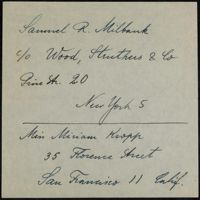 Samuel R. Milbank
c/o Wood, Struthers & Co
Pine St. 20
New York 5
Miss Miriam Kropp
35 Florence Street
San Francisco 11 Calif.